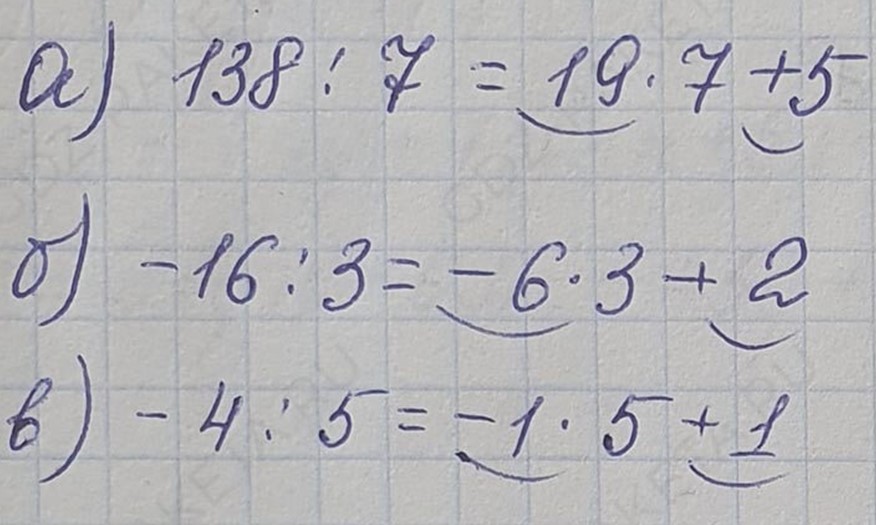 а) 138 : 7 = 19 · 7 + 5
б) - 16 : 3 = - 6 · 3 + 2
в) - 4 : 5 = - 1 · 5 + 1